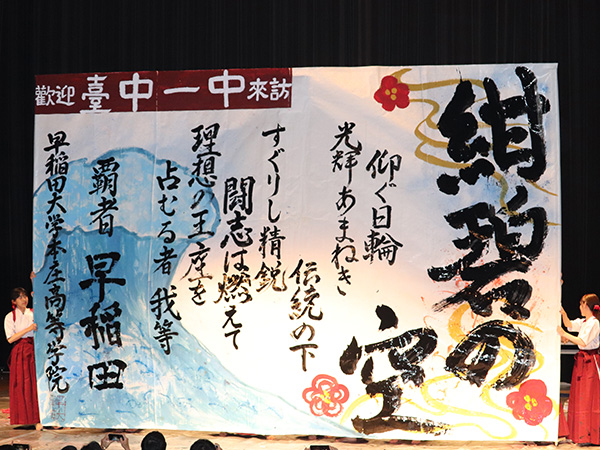 歡迎 臺中一中 來訪
紺碧の
空
仰ぐ日輪
光輝あまねき
伝統の下
すぐりし精鋭
闘志は燃えて
理想の王座を
占むる者 我等
覇者 早稲田
早稲田大学本庄高等学院